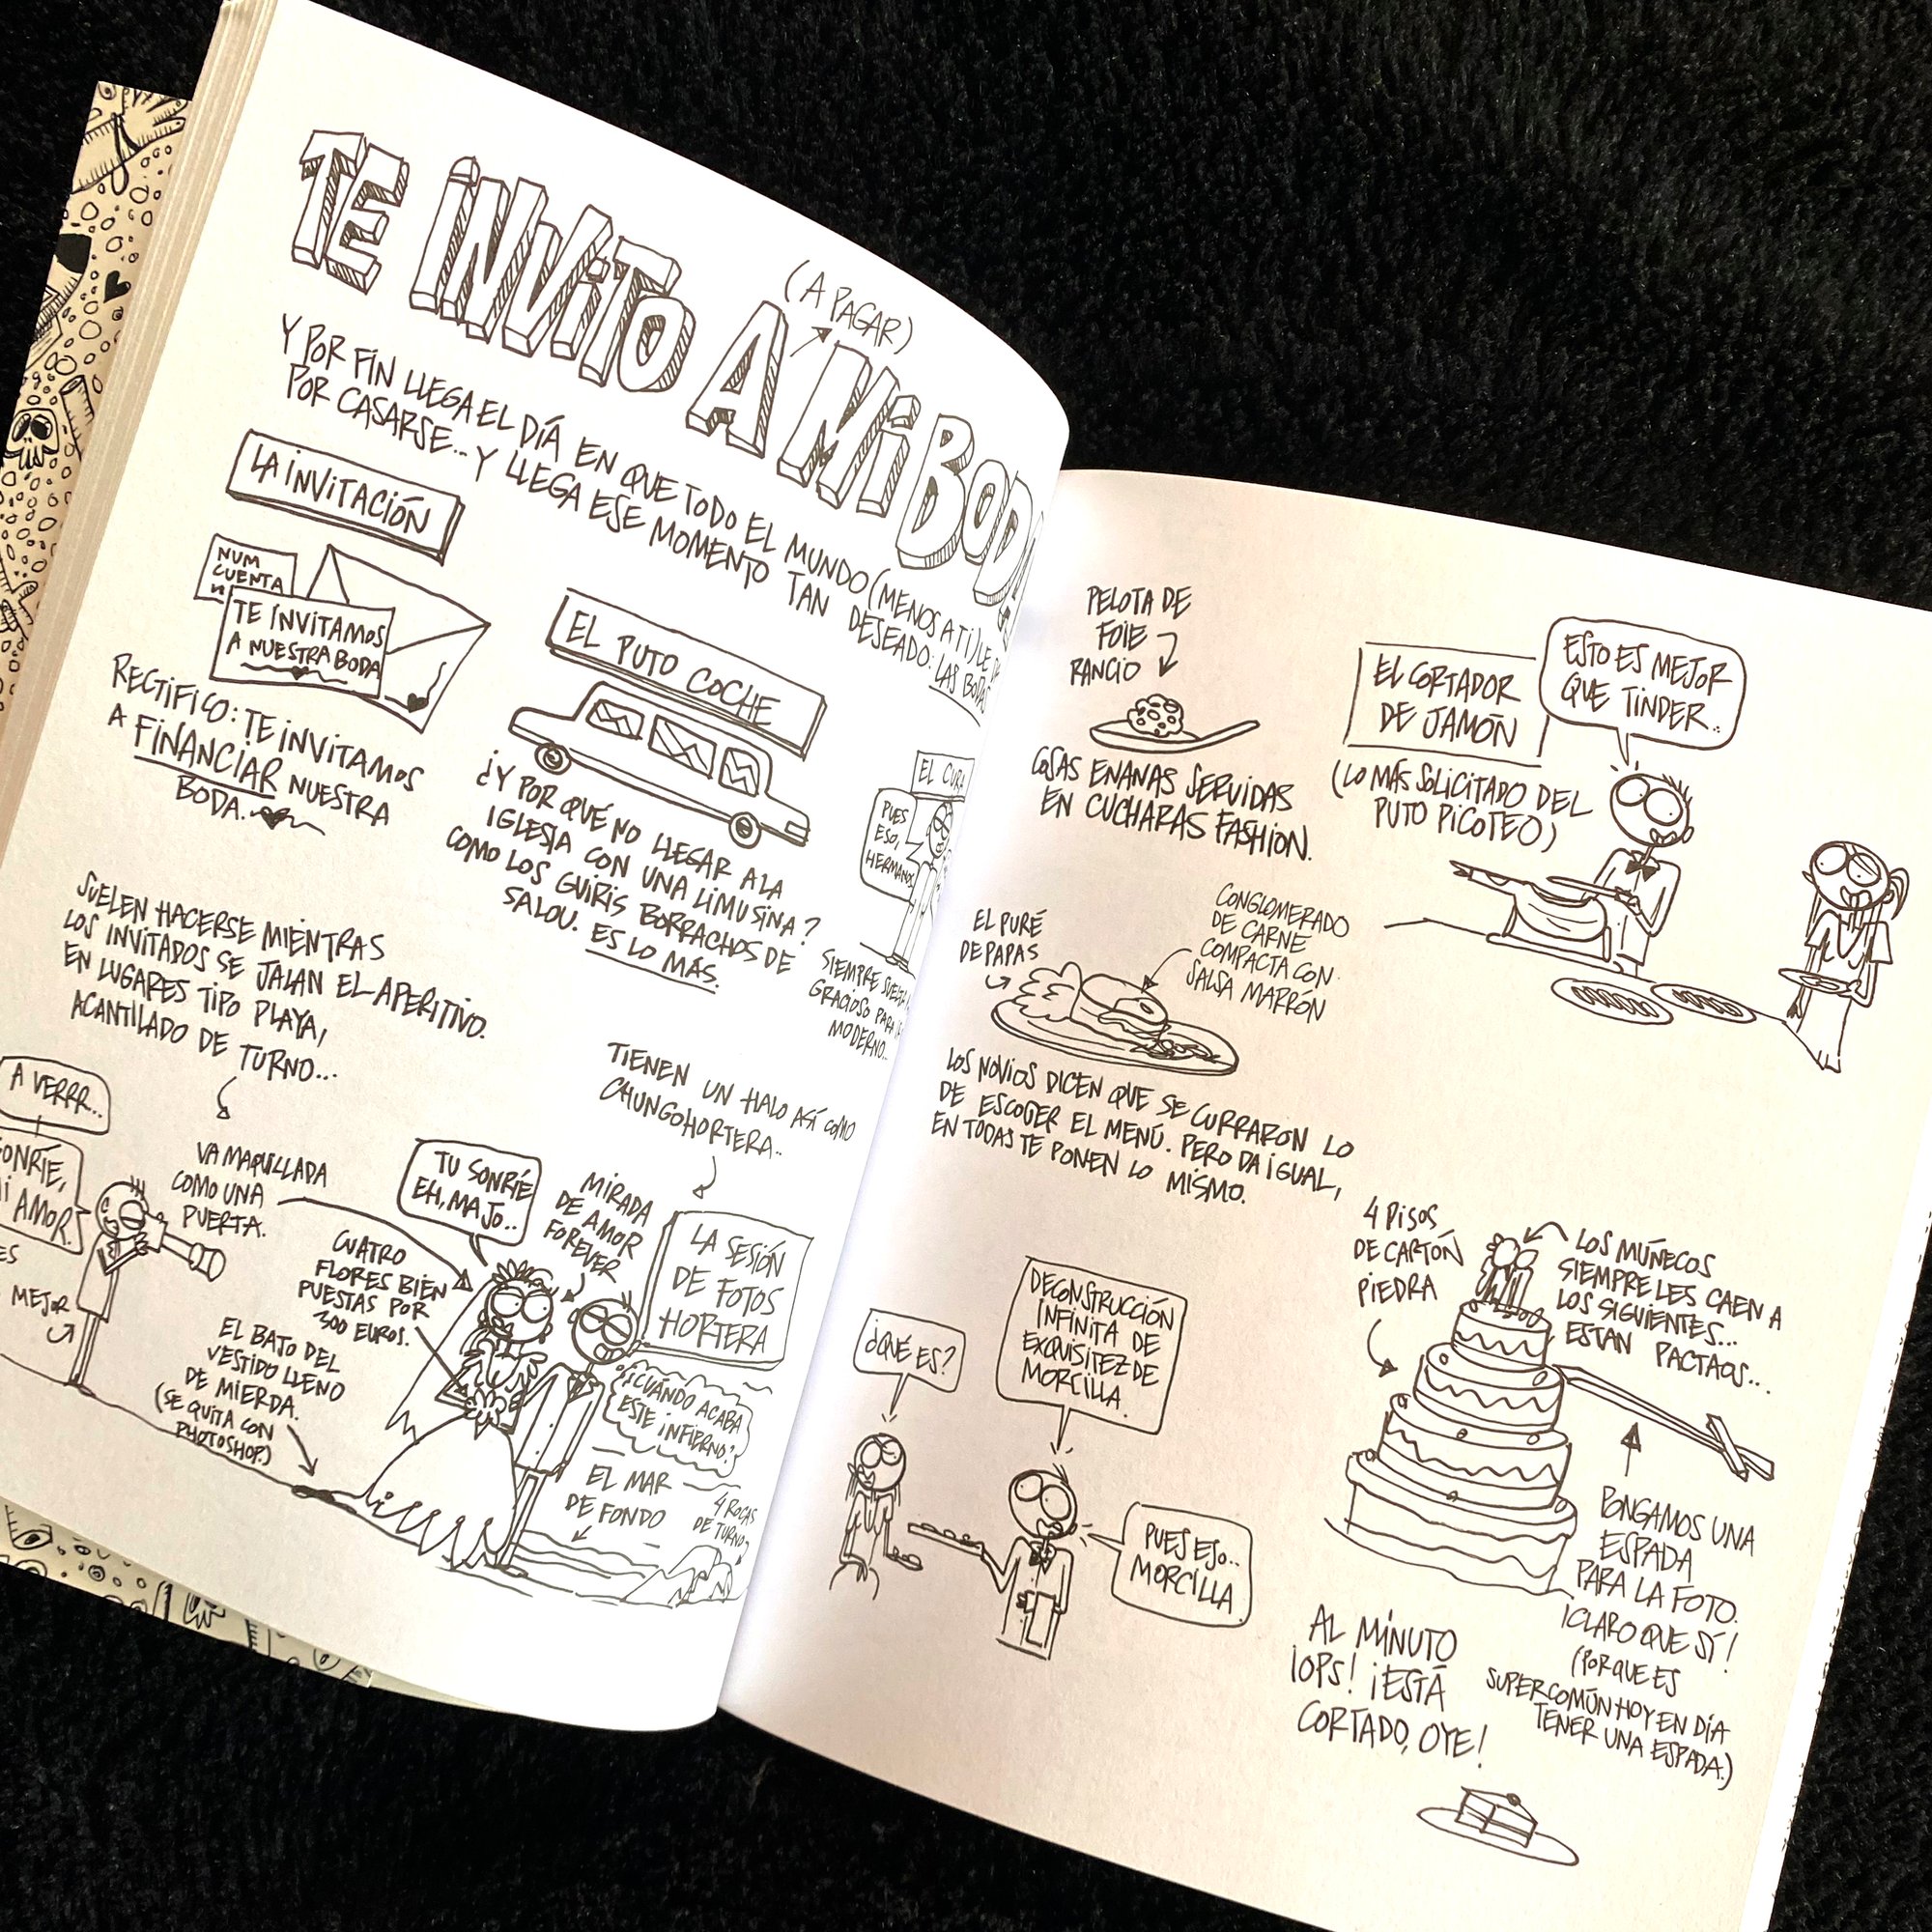 TE INVITO A MI BODA
(A PAGAR)
Y POR FIN LLEGA EL DÍA EN QUE TODO EL MUNDO (MENOS A TI) LE DA
POR CASARSE... Y LLEGA ESE MOMENTO TAN DESEADO: LAS BODAS
LA INVITACIÓN
NUM
CUENTA
TE INVITAMOS
A NUESTRA BODA
RECTIFICO: TE INVITAMOS
A FINANCIAR NUESTRA
BODA.
EL PUTO COCHE
¿Y POR QUÉ NO LLEGAR A LA
IGLESIA CON UNA LIMUSINA?
COMO LOS GUIRIS BORRACHOS DE
SALOU. ES LO MÁS.
EL CURA
PUES
ESO,
HERMANOS
SIEMPRE SUELTA
GRACIOSO PARA
MODERNO..
SUELEN HACERSE MIENTRAS
LOS INVITADOS SE JALAN EL APERITIVO.
EN LUGARES TIPO PLAYA,
ACANTILADO DE TURNO...
TIENEN UN HALO ASÍ COMO
CHUNGOHORTERA..
LA SESIÓN
DE FOTOS
HORTERA
A VERRR..
SONRÍE,
MI AMOR.
MEJOR
VA MAQUILLADA
COMO UNA
PUERTA.
TU SONRÍE
EH, MAJO..
MIRADA
DE AMOR
FOREVER
CUATRO
FLORES BIEN
PUESTAS POR
300 EUROS.
EL BAJO DEL
VESTIDO LLENO
DE MIERDA.
(SE QUITA CON
PHOTOSHOP.)
¿CUÁNDO ACABA
ESTE INFIERNO?
EL MAR
DE FONDO
4 ROCAS
DE TURNO
PELOTA DE
FOIE
RANCIO
COSAS ENANAS SERVIDAS
EN CUCHARAS FASHION.
EL CORTADOR
DE JAMÓN
ESTO ES MEJOR
QUE TINDER..
(LO MÁS SOLICITADO DEL
PUTO PICOTEO)
EL PURÉ
DE PAPAS
CONGLOMERADO
DE CARNE
COMPACTA CON
SALSA MARRÓN
LOS NOVIOS DICEN QUE SE CURRARON LO
DE ESCOGER EL MENÚ. PERO DA IGUAL,
EN TODAS TE PONEN LO MISMO.
¿QUÉ ES?
DECONSTRUCCIÓN
INFINITA DE
EXQUISITEZ DE
MORCILLA.
PUES ESO..
MORCILLA
4 PISOS
DE CARTÓN
PIEDRA
LOS MUÑECOS
SIEMPRE LES CAEN A
LOS SIGUIENTES...
ESTAN PACTAOS...
PONGAMOS UNA
ESPADA
PARA LA FOTO.
¡CLARO QUE SÍ!
(PORQUE ES
SUPERCOMÚN HOY EN DÍA
TENER UNA ESPADA.)
AL MINUTO
¡OPS! ¡ESTÁ
CORTADO, OYE!